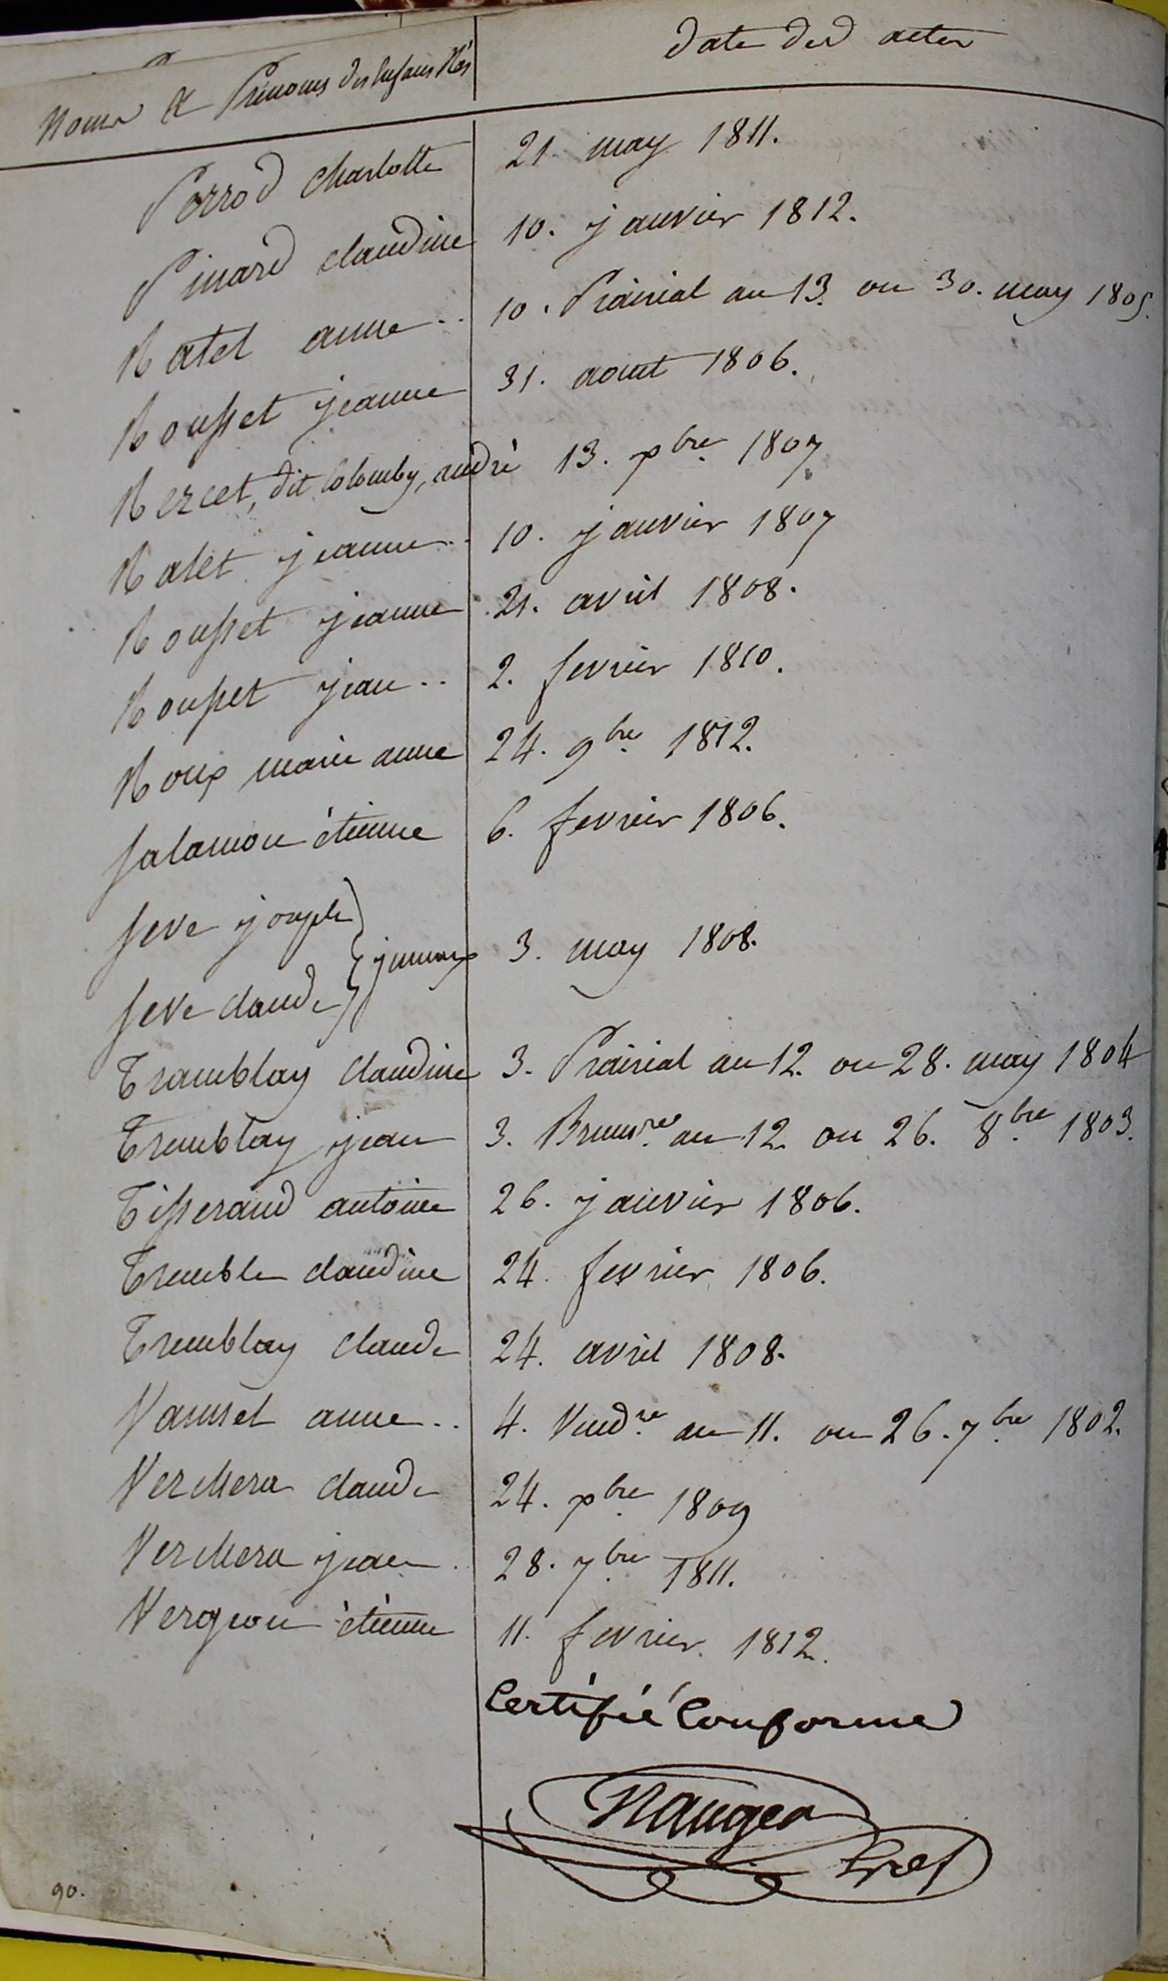 Noms & Prénoms des Enfans Nés | date des actes
Perrod charlotte | 21. may 1811.
Pinard claudine | 10. janvier 1812.
Ratel anne .. | 10. Prairial an 13. ou 30. may 1805.
Rousset jeanne | 31. aout 1806.
Rercet, dit Colomby, andré | 13. xbre 1807
Ratet jeanne .. | 10. janvier 1807
Rousset jeanne | 21. avril 1808.
Rousset jean .. | 2. fevrier 1810.
Roux marie anne | 24. 9bre 1812.
Salamon étienne | 6. fevrier 1806.
Seve joseph
jumeaux | 3. may 1808.
Seve claude
Tramblay claudine | 3. Prairial an 12. ou 28. may 1804
Tremblay jean | 3. Brumre an 12 ou 26. 8bre 1803.
Tisserand antoine | 26. janvier 1806.
Tremble claudine | 24. fevrier 1806.
Tremblay claude | 24. avril 1808.
Vannet anne .. | 4. Vendre an 11. ou 26. 7bre 1802.
Verchera claude | 24. xbre 1809
Verchera jean . | 28. 7bre 1811.
Vergion étienne | 11. fevrier. 1812.
Certifié Conforme
Naugea
90.